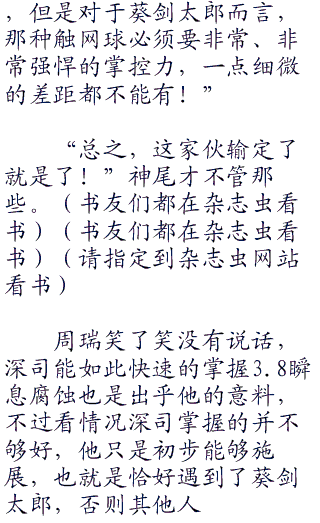 ，但是对于葵剑太郎而言，
那种触网球必须要非常、非
常强悍的掌控力，一点细微
的差距都不能有！”
“总之，这家伙输定了
就是了！”神尾才不管那
些。（书友们都在杂志虫看
书）（书友们都在杂志虫看
书）（请指定到杂志虫网站
看书）
周瑞笑了笑没有说话，
深司能如此快速的掌握3.8瞬
息腐蚀也是出乎他的意料，
不过看情况深司掌握的并不
够好，他只是初步能够施
展，也就是恰好遇到了葵剑
太郎，否则其他人